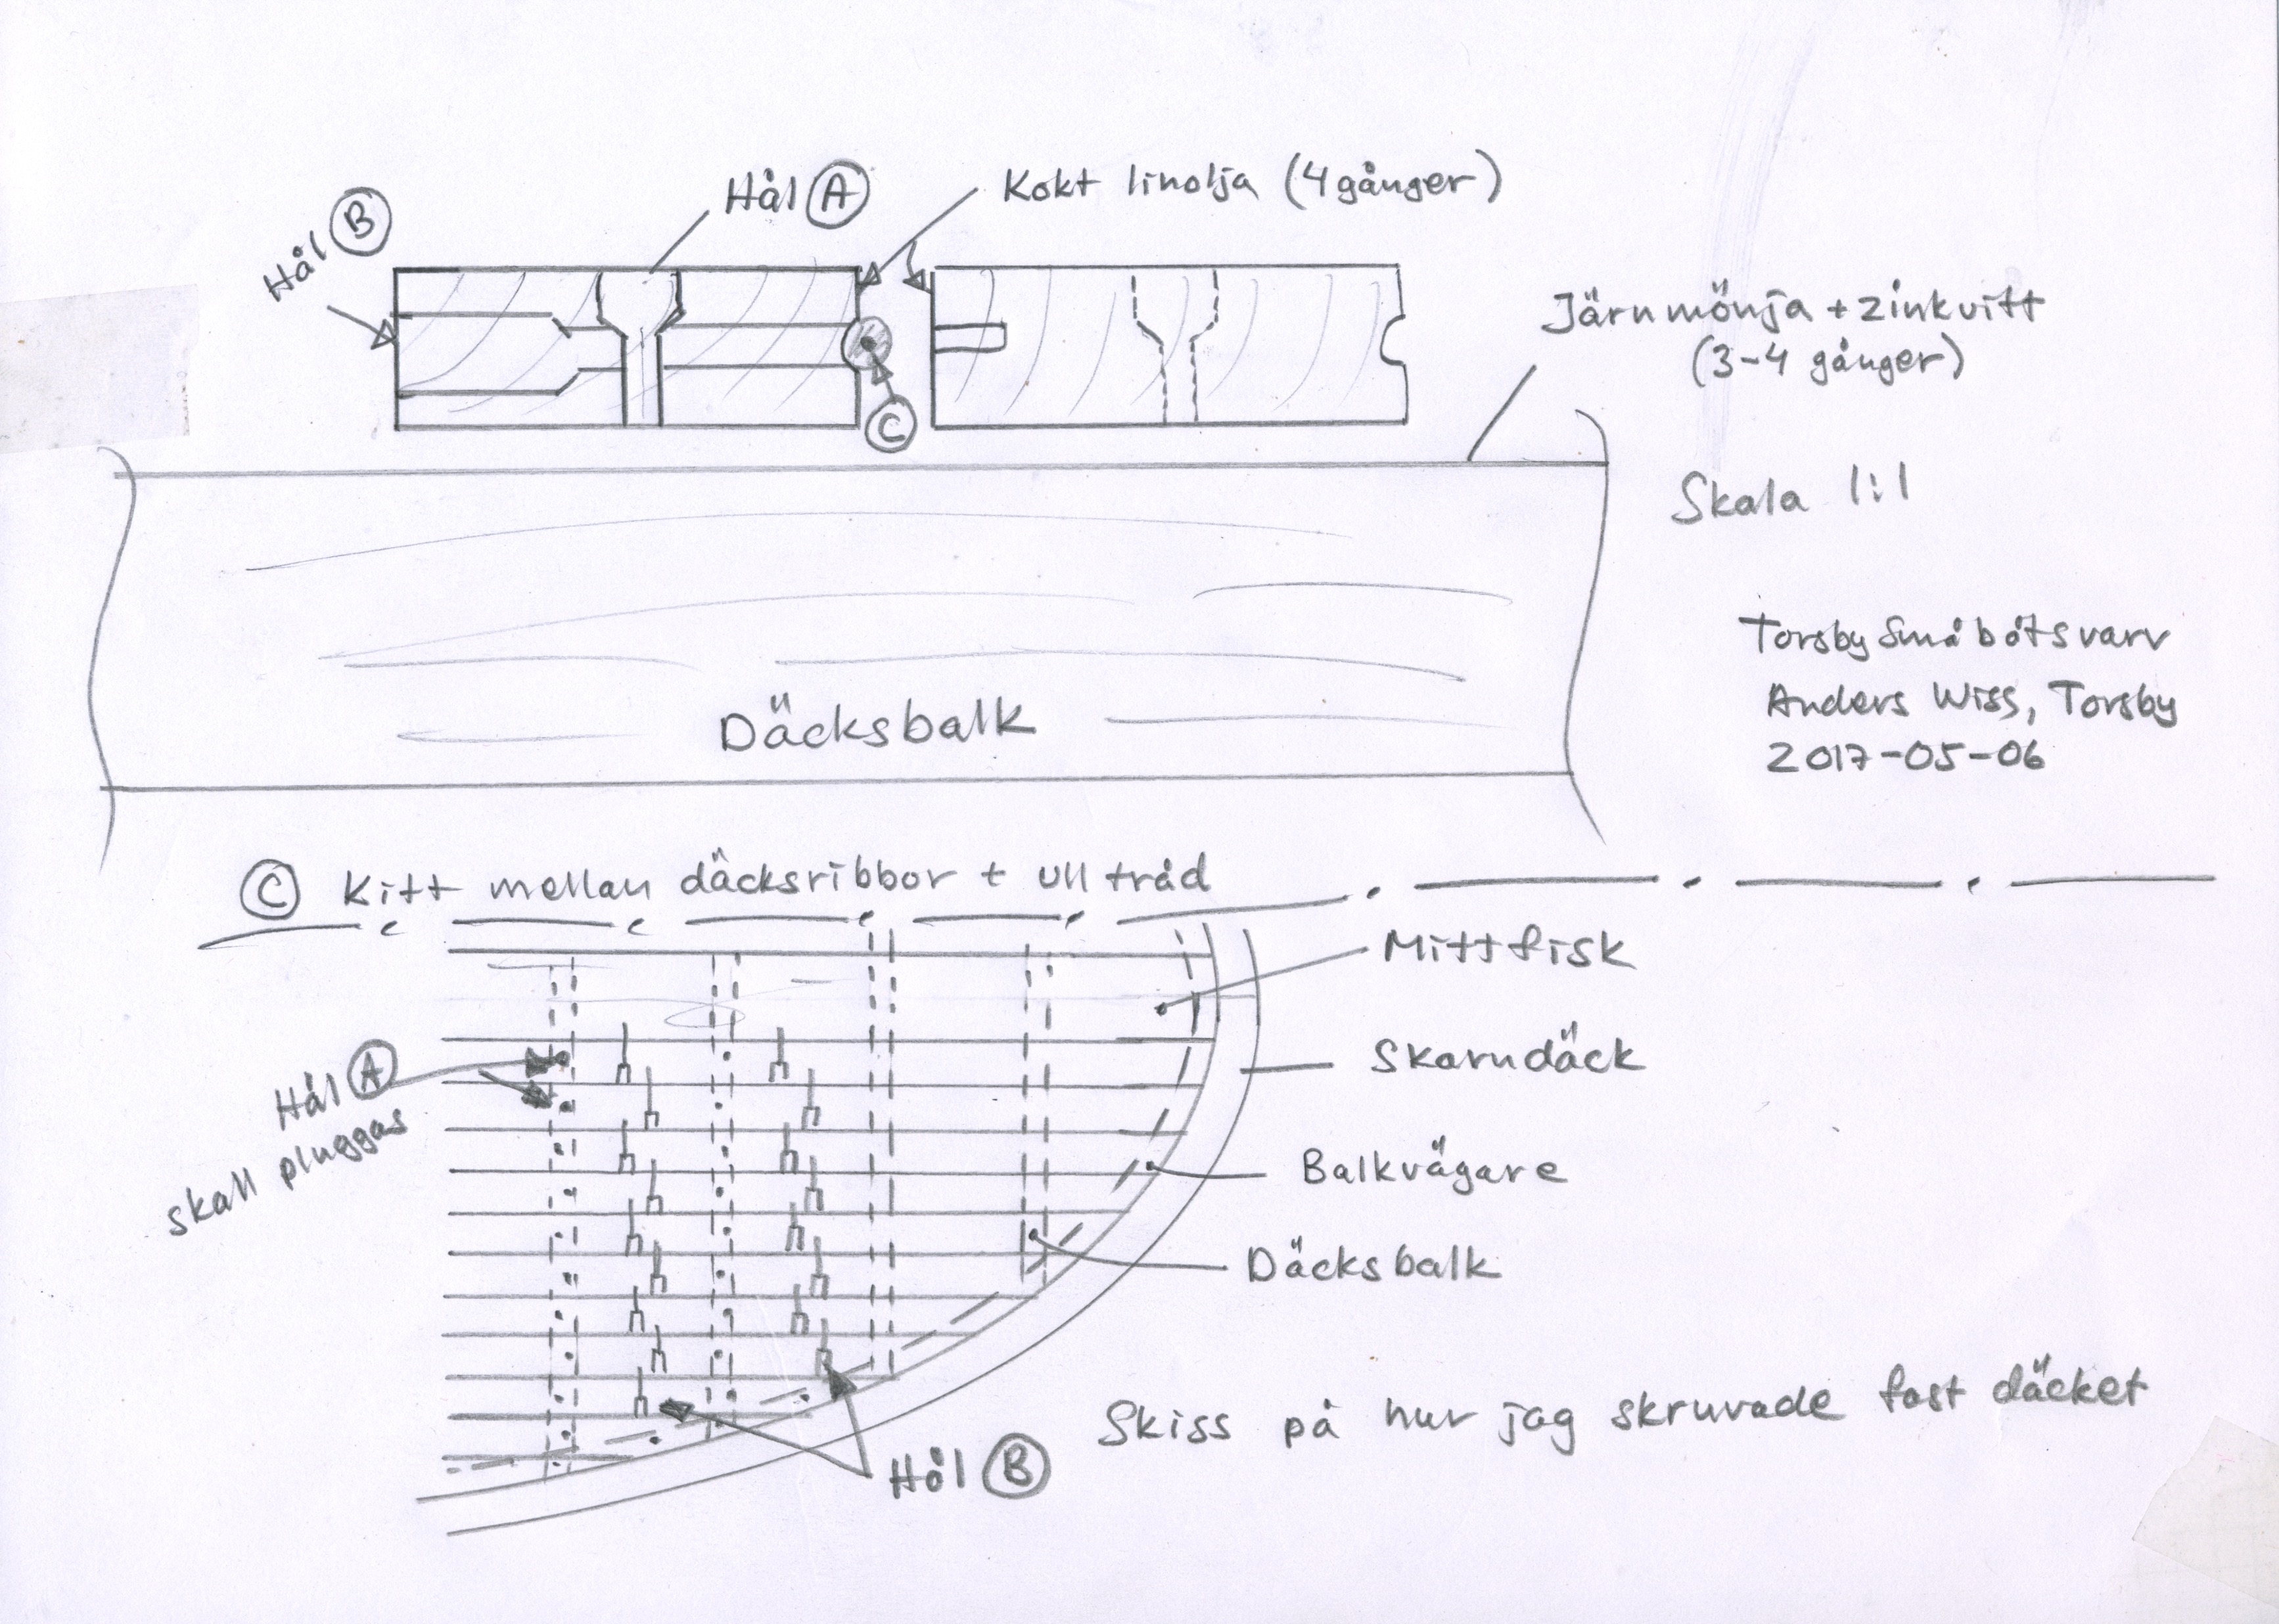 Hål B
Hål A
Kokt linolja (4 gånger)
Järnmönja + zinkvitt
(3-4 gånger)
C
Skala 1:1
Torsby Småbåtsvarv
Anders Wiss, Torsby
2017-05-06
Däcksbalk
C Kitt mellan däcksribbor + ulltråd
Mittfisk
Skarndäck
Hål A
skall pluggas
Balkvägare
Däcksbalk
Skiss på hur jag skruvade fast däcket
Hål B